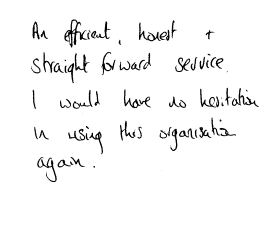 An efficient, honest +
straight forward service.
I would have no hesitation
in using this organisation
again.